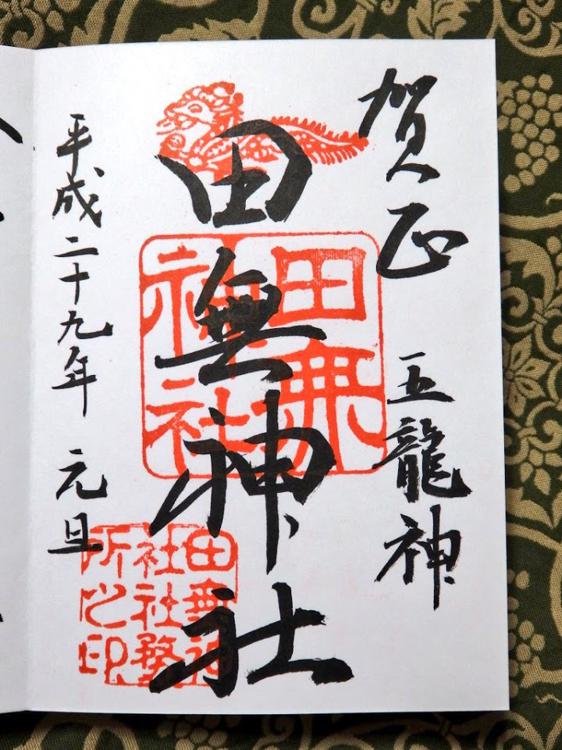 賀正 五龍神
田無神社
平成二十九年 元旦
田無
神社
田無神
社社務
所之印